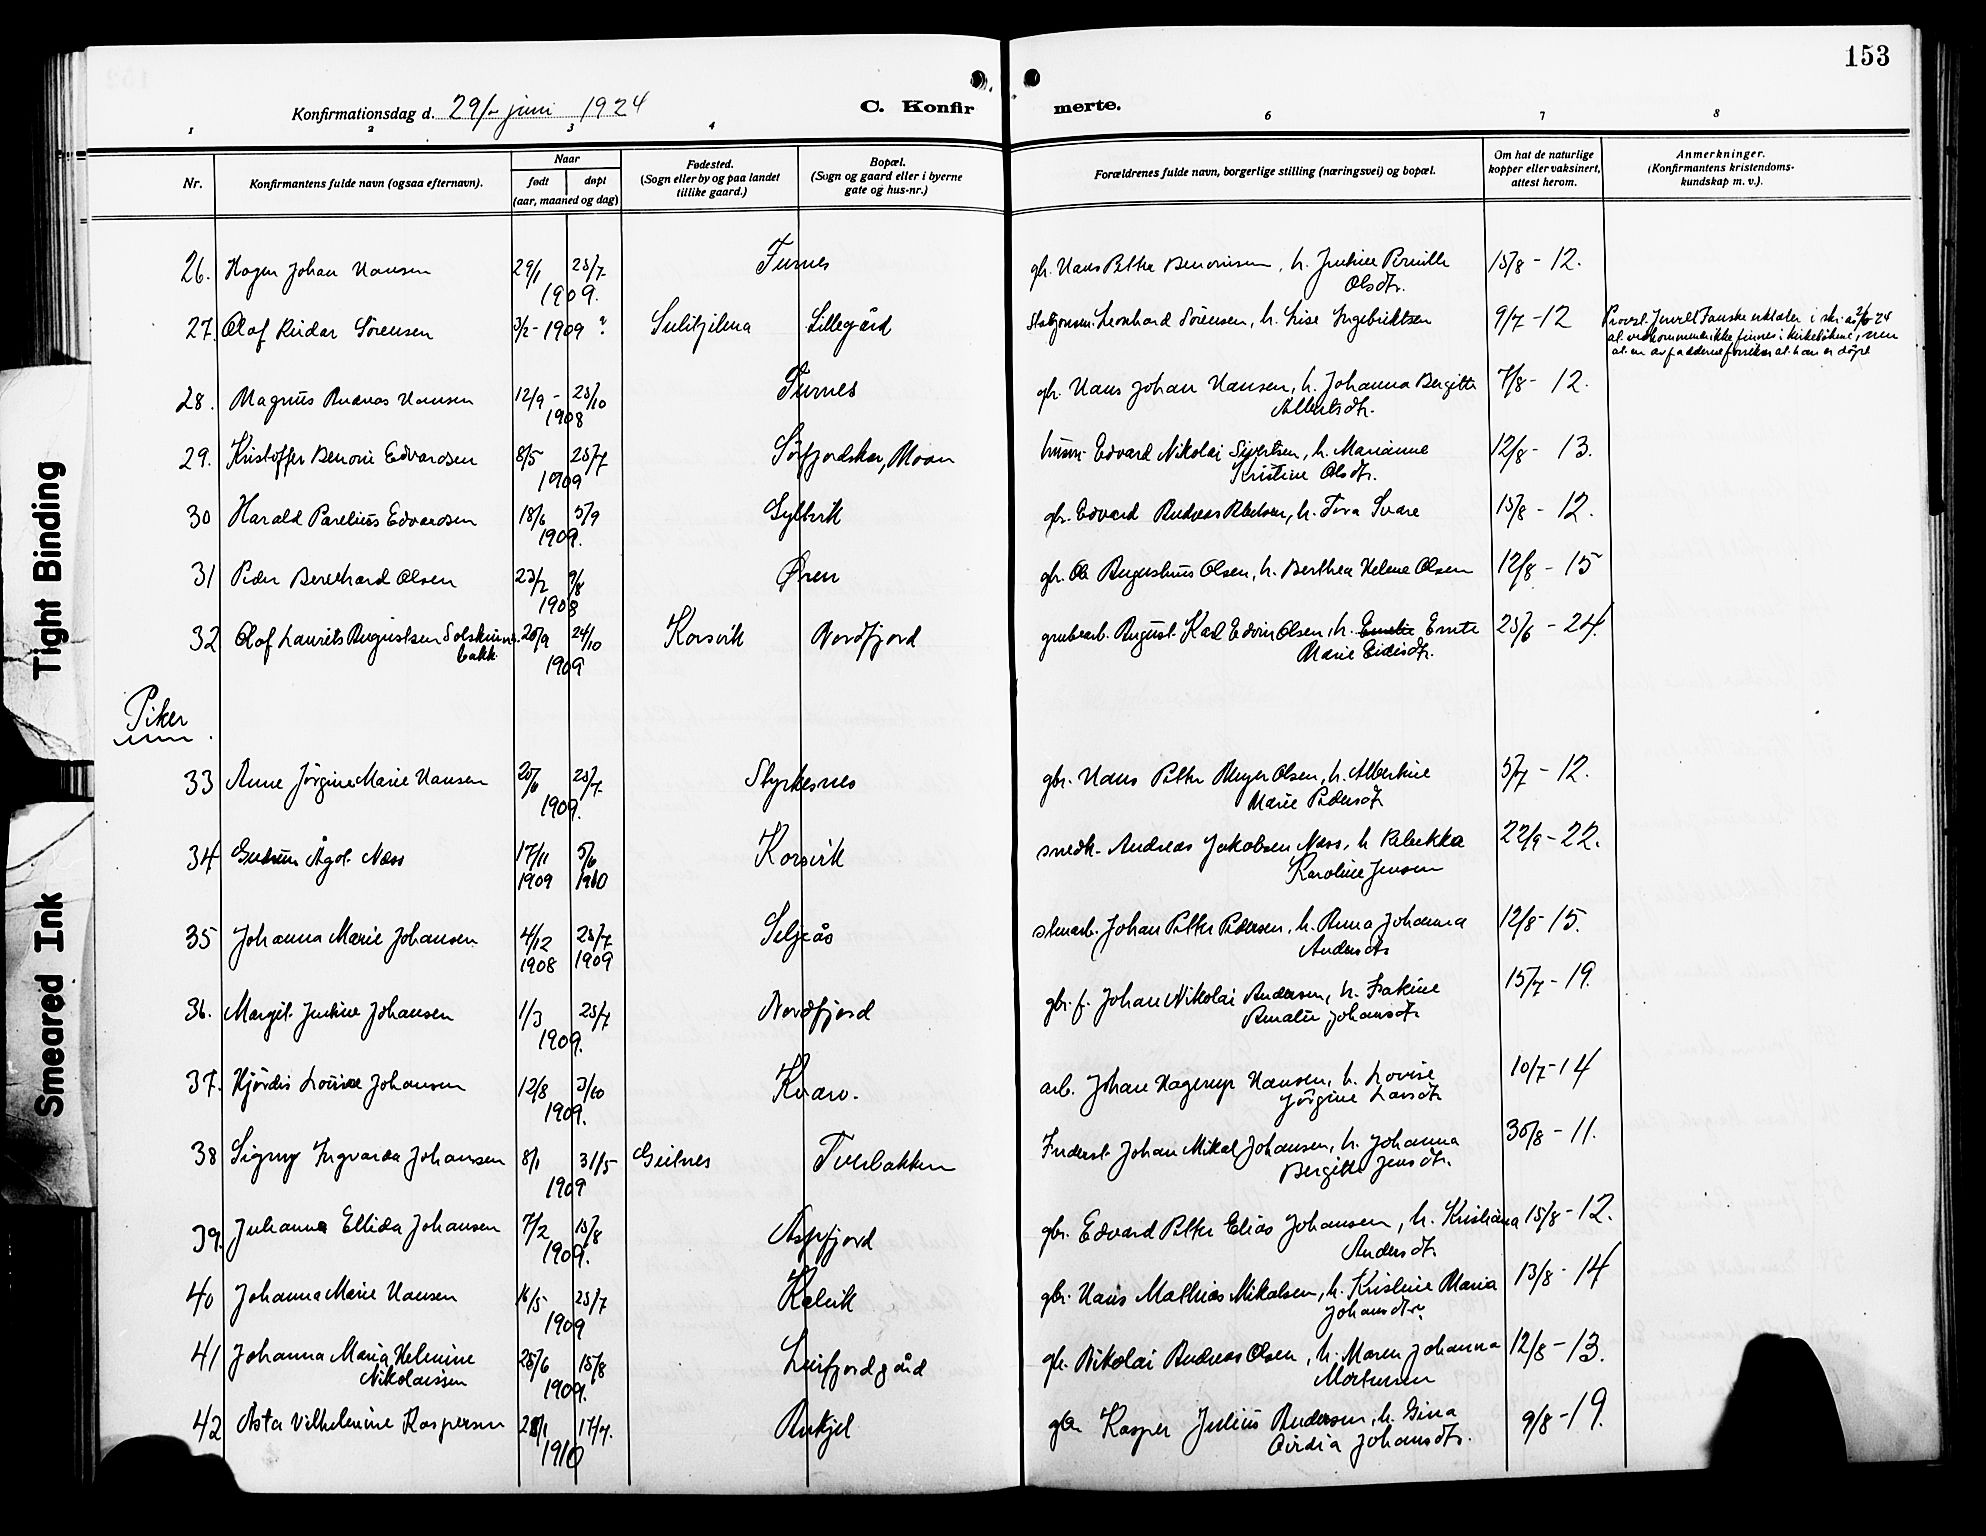 153
Konfirmationsdag d. 29/ juni 1924
C. Konfirmerte.
1 2 3 4 6 7 8
Nr.
Konfirmantens fulde navn (ogsaa efternavn).
Naar
født døpt
(aar, maaned og dag)
Fødested.
(Sogn eller by og paa landet
tillike gaard.)
Bopæl.
(Sogn og gaard eller i byerne
gate og hus-nr.)
Forældrenes fulde navn, borgerlige stilling (næringsvei) og bopæl.
Om hat de naturlige
kopper eller vaksinert,
attest herom.
Anmerkninger.
(Konfirmantens kristendoms-
kundskap m. v.).
26. Hagen Johan Hansen 29/1 25/7 1909. Furnes gb. Hans Petter Benonisen, h. Justine Pernille Olsdtr. 15/8 - 12.
27. Olaf Reidar Sörensen 3/2 - 1909 ? Sulitjelma Lillegård Leonhard Sörensen, h. Lise Ingebriktsen 9/7 - 12
at vedkommende ikke finnes i kirkebökene, men
at en av fadderne forsikrer at han er döpt
28. Magnus Andreas Hansen 12/9 - 25/10 1908 Furnes gb. Hans Johan Hansen, h. Johanna Bergitte Albertsdtr. 7/8 - 12.
29. Kristoffer Benoni Edvardsen 8/5 25/7 1909 Sörfjordskar, Moan husm. Edvard Nikolai Sivertsen, h. Marianne Kristine Olsdtr. 12/8 - 13.
30 Harald Parelius Edvardsen 18/6 5/9 1909. Gyltvik gbr. Edvard Andreas Pedersen, h. Tora Svare 15/8 - 12.
31 Peder Bernhard Olsen 23/2 9/8 1908 Øren gbr. Ole Augustinus Olsen, h. Berthea Helene Olsen 12/8 - 15
32 Olof Laurits Augustsen Solskinns-
bakk 20/9 24/10 1909 Korsvik Nordfjord grubearb. August Karl Edvin Olsen, h. Emelie Ernte Marie Eidisdtr. 25/6 - 24.
Piker
33 Anne Jörgine Marie Hansen 20/6 25/7 1909. Styrkesnes gbr. Hans Petter Meyer Olsen, h. Albertine Marie Pedersdtr 5/7 - 12.
34 Gudrun Ågot Næss 17/11 1909 5/6 1910 Korsvik snedk. Andreas Jakobsen Næss, h. Rebekka Karoline Jensen 22/9 - 22.
35 Johanna Marie Johansen 4/12 1908 25/7 1909 Seljeås stenarb. Johan Petter Pedersen, h. Anna Johanna Andersdtr 12/8 - 15.
36. Margit Justine Johansen 1/3 25/7 1909. Nordfjord gbr. f. Johan Nikolai Andersen, h. Amalie Johansdtr. 15/7 - 19.
37. Hjördis Lovise Johansen 12/8 3/10 1909. Kvarv. arb. Johan Hagerup Hansen, h. Lovise Jörgine Larsdtr 10/7 - 14
38 Signy Ingvarda Johansen 8/1 31/5 1909 Geitnes Tverbakken Inderst Johan Mikal Johansen, h. Johanna Bergitte Jensdtr. 30/8 - 11.
39. Julianna Ellida Johansen 7/2 15/8 1909. Aspfjord gbr. Edvard Petter Elias Johansen, h. Kristiana Andersdtr. 15/8 - 12.
40 Johanna Marie Hansen 16/5 25/7 1909 Kalvik gbr. Hans Mathias Mikalsen, h. Kristine Maria Johansdtr. 13/8 - 14
41 Johanna Maria Helmine
Nikolaissen 25/6 15/8 1909. Leirfjordgård gb. Nikolai Andreas Olsen, h. Maren Johanna Mortensen 12/8 - 13.
42 Asta Vilhelmine Kaspersen 28/1 17/7. 1910 Ankjel gbr Kasper Julius Andersen, h. Gina Johansdtr. 9/8 - 19.
Tight Binding
Smeared Ink